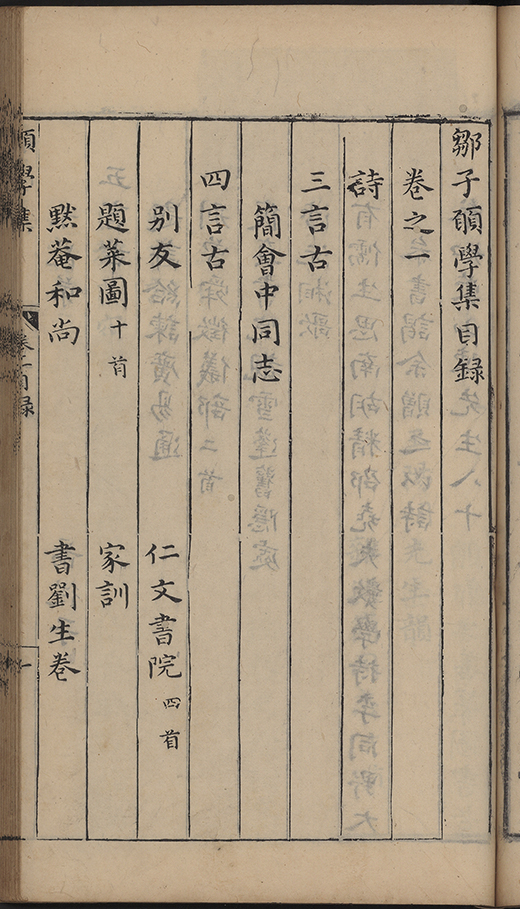 鄒子願學集目録
卷之一
詩
三言古
簡會中同志
四言古
别友 仁文書院 四首
題菜圖 十首 家訓
黙菴和尚 書劉生卷
願學集 卷之一目録 一